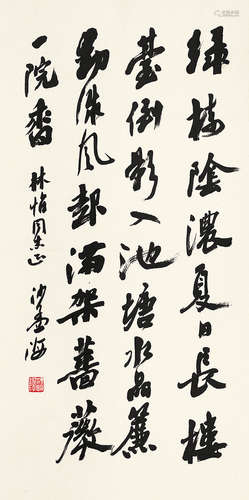 绿树阴浓夏日长楼
台倒影入池塘水晶簾
动微风起满架蔷薇
一院香 林怡同志正 沙孟海